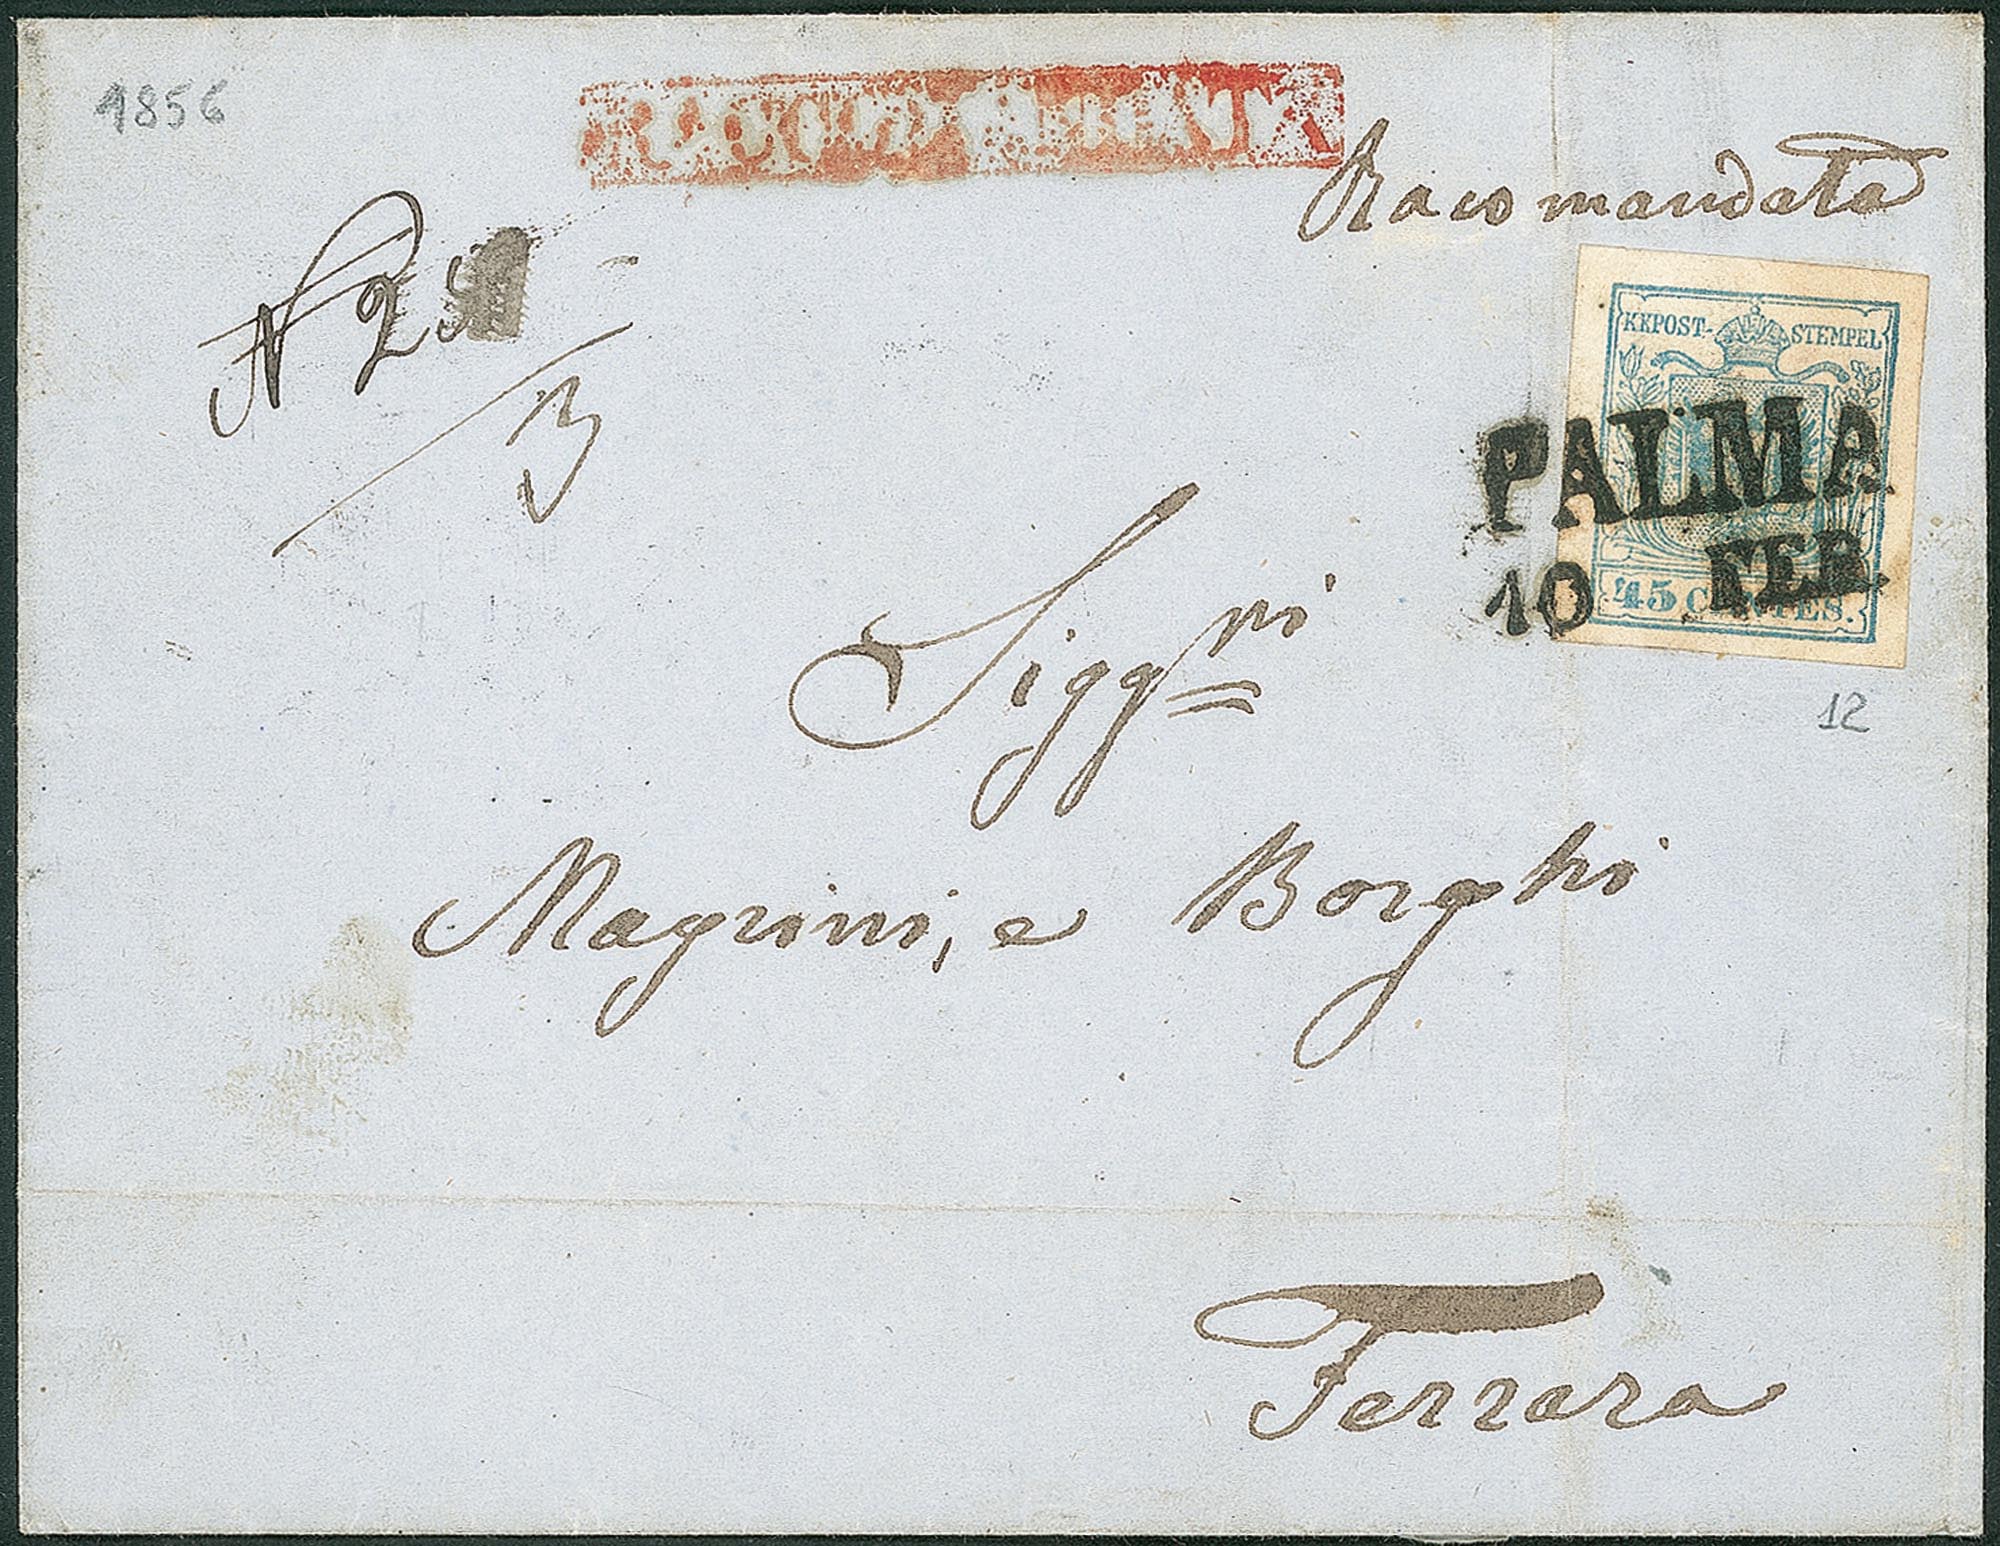 1856
Racomandata
N 2
3
KKPOST-STEMPEL
PALMA
10 FEB.
45 CENTES.
12
Siggri
Magrini, e Borghi
Ferrara